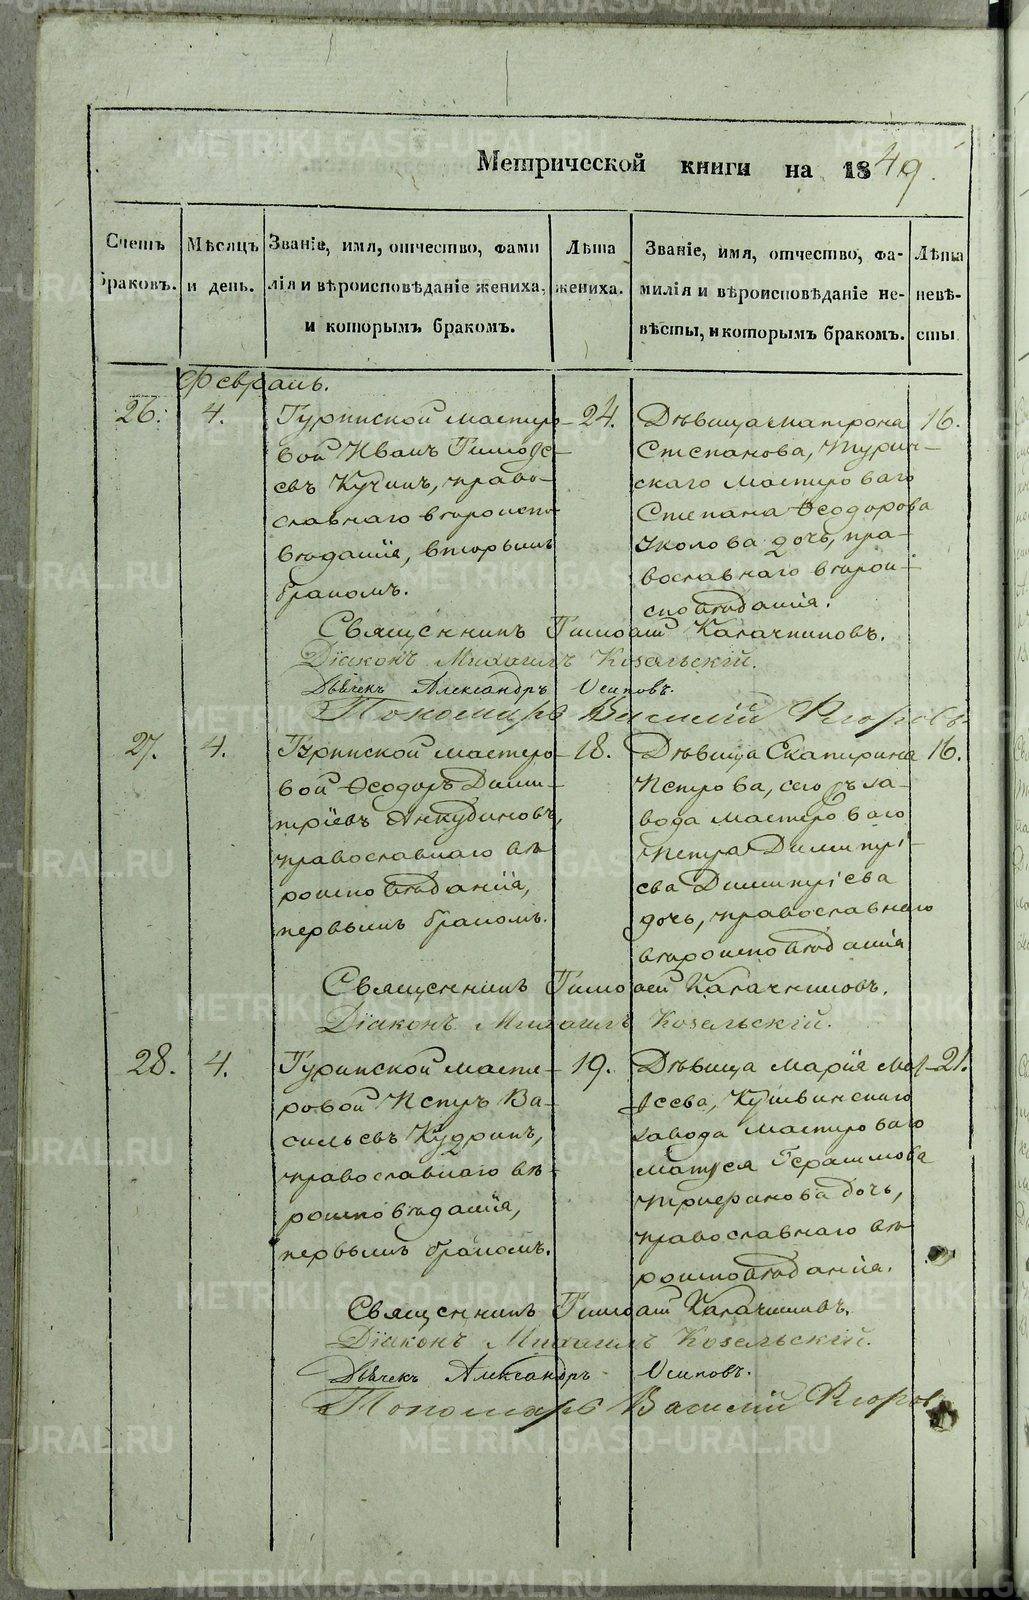 Метрической книги на 1849.
Счетъ браковъ.
Мѣсяцъ и день.
Званіе, имя, отчество, фами
лія и вѣроисповѣданіе жениха,
и которымъ бракомъ.
Лѣта жениха.
Званіе, имя, отчество, фа-
милія и вѣроисповѣданіе не-
вѣсты, и которымъ бракомъ.
Лѣта невѣ-
сты
Февраль.
26.
4.
Туринской мастеро-
вой Иванъ Тимоѳе-
евъ Кучинъ, право-
славнаго вѣроиспо-
вѣданія, вторымъ
бракомъ.
24.
Дѣвица Матрона
Степанова, Турин-
скаго мастероваго
Степана Ѳеодорова
дочь, пра-
вославнаго вѣрои-
сповѣданія.
16.
Священникъ Тимоѳей Калачниковъ.
Діаконъ Михаилъ Козельскій.
Дьячекъ Александръ Осиповъ.
Пономарь Василій
27.
4.
Туринской мастеро-
вой Ѳеодоръ Дими-
тріевъ Анкудиновъ,
православнаго вѣ-
роисповѣданія,
первымъ бракомъ.
18.
Дѣвица Екатерина
Петрова, сего за-
вода мастероваго
Петра Димитрі-
ева Димитріева
дочь, православнаго
вѣроисповѣданія
16.
Священникъ Тимоѳей Калачниковъ.
Діаконъ Михаилъ Козельскій.
28.
4.
Туринской масте-
ровой Петръ Ва-
сильевъ Кудринъ,
православнаго вѣ-
роисповѣданія,
первымъ бракомъ.
19.
Дѣвица Марія Мат-
ѳеева, Кушвинскаго
завода мастероваго
Матѳея Герасимова
дочь,
православнаго вѣ-
роисповѣданія.
21.
Священникъ Тимоѳей Калачниковъ.
Діаконъ Михаилъ Козельскій.
Дьячекъ Александръ Осиповъ.
Пономарь Василій
METRIKI.GASO-URAL.RU